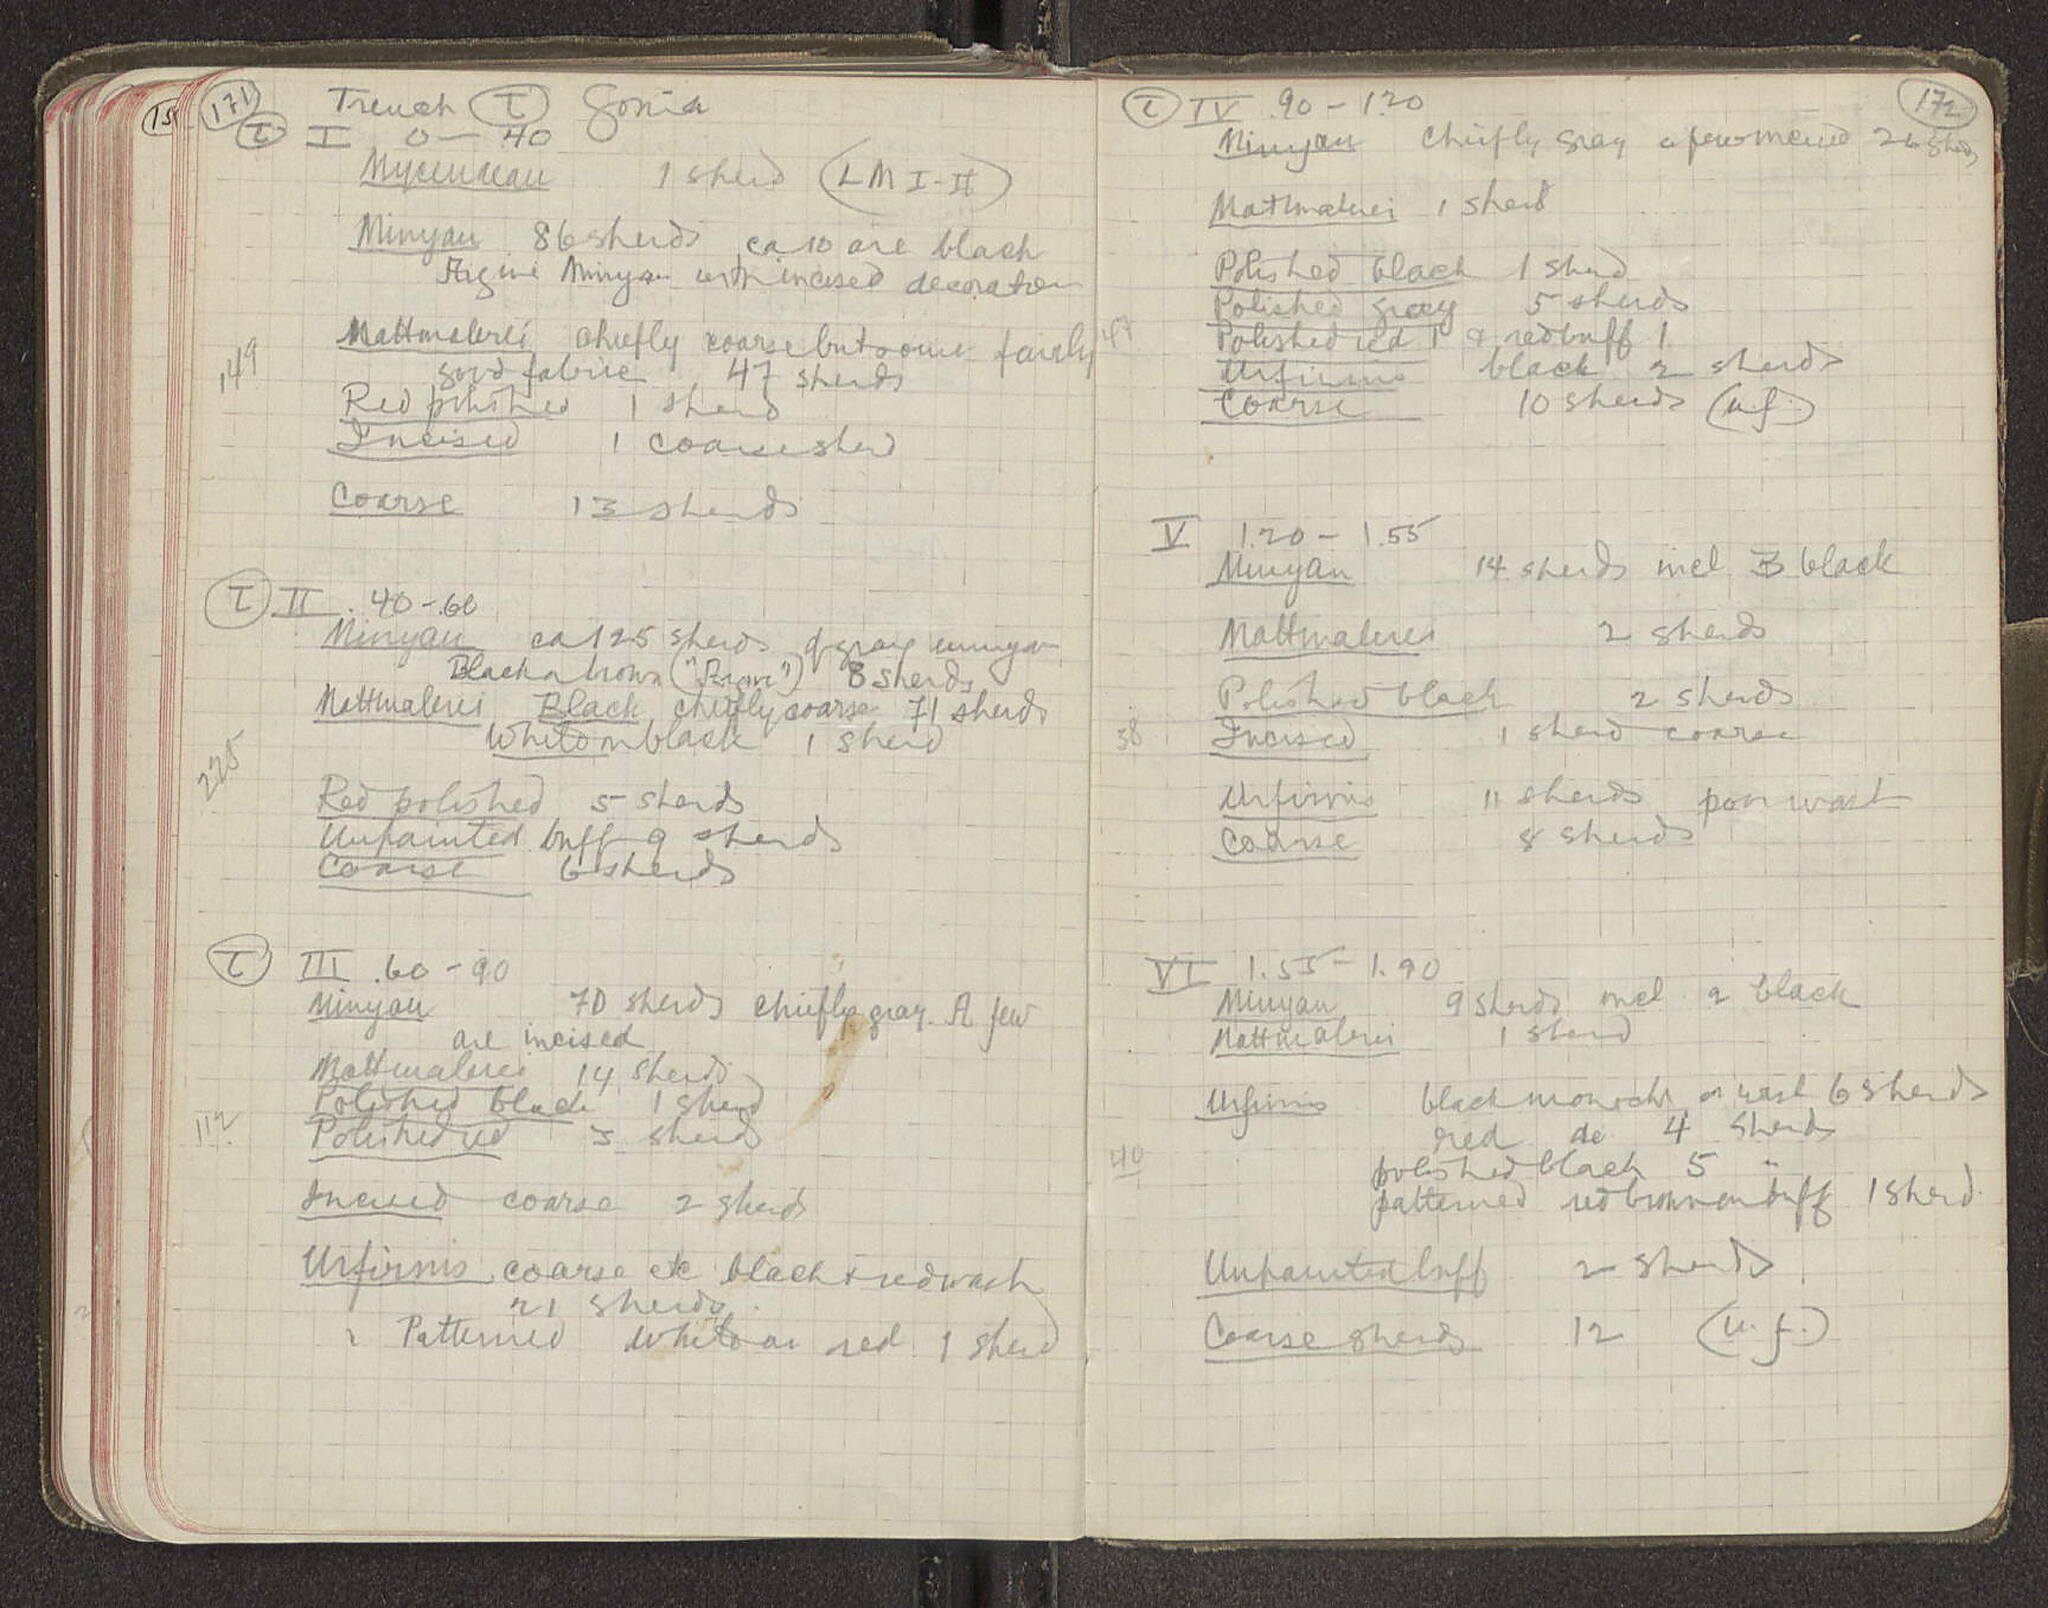 171
Trench τ Gonia
τ I 0 — 40
Mycenaean 1 sherd (LM I-II)
Minyan 86 sherds ca 10 are black
Argive Minyan with incised decoration
Mattmalerei chiefly coarse but some fairly
good fabric 47 sherds
149
Red polished 1 sherd
Incised 1 coarse sherd
Coarse 13 sherds
τ II .40-.60
Minyan ca 125 sherds of gray minyan
Black or brown ("Argive") 8 sherds
Mattmalerei Black chiefly coarse 71 sherds
White on black 1 sherd
225
Red polished 5 sherds
Unpainted buff 9 sherds
Coarse 6 sherds
τ III .60-90
Minyan 70 sherds chiefly gray. A few
are incised
Mattmalerei 14 sherds
Polished black 1 sherd
112
Polished red 3 sherds
Incised coarse 2 sherds
Urfirnis coarse etc black & red wash
21 sherds
Patterned White on red 1 sherd
172
τ IV .90-1.20
Minyan Chiefly gray a few incised 26 sherds
Mattmalerei 1 sherd
Polished black 1 sherd
Polished gray 5 sherds
47
Polished red 1 & red buff 1
Urfirnis black 2 sherds
Coarse 10 sherds (u.f.)
V 1.20-1.55
Minyan 14 sherds incl 3 black
Mattmalerei 2 sherds
Polished black 2 sherds
38
Incised 1 sherd coarse
Urfirnis 11 sherds poor wash
Coarse 8 sherds
VI 1.55-1.90
Minyan 9 sherds incl 2 black
Mattmalerei 1 sherd
Urfirnis black monochr or wash 6 sherds
red do 4 sherds
40
polished black 5 "
patterned red brown on buff 1 sherd.
Unpainted buff 2 sherds
Coarse sherds 12 (u.f.)